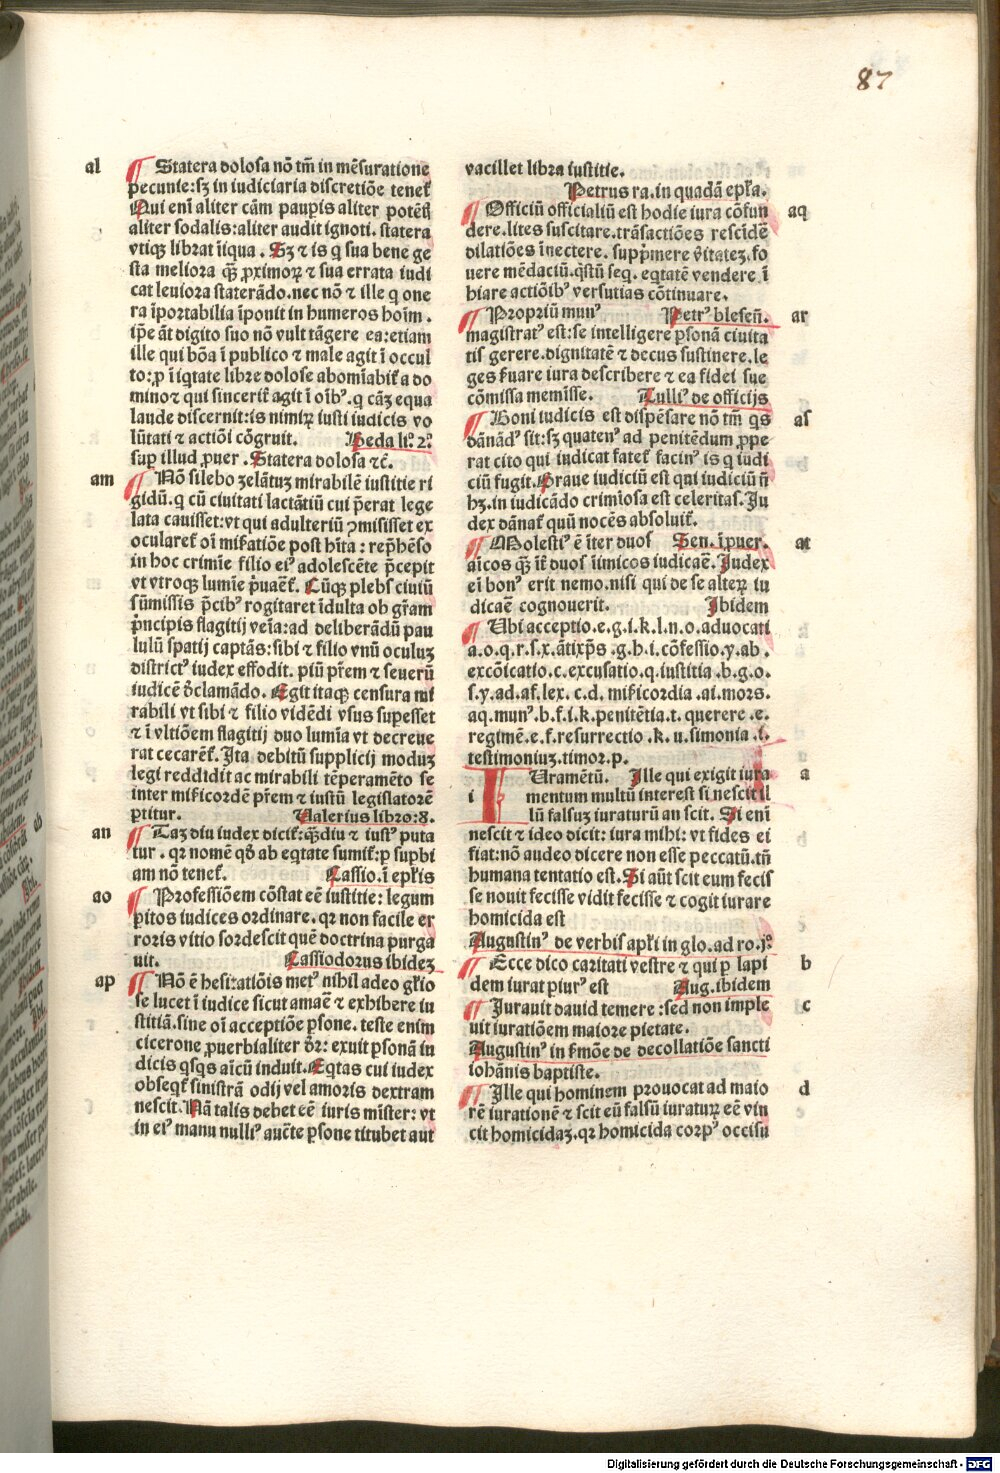 87
al
¶ Statera dolosa nō tm̄ in mēsuratione
pecunie:sꝫ in iudiciaria discretiōe tenet᷑
Qui enī aliter cām paupis aliter potētꝭ
aliter sodalis:aliter audit ignoti. statera
vtiqꝫ librat īiqua . Sꝫ ⁊ is q sua bene ge
sta meliora q̄ꝫ ꝓximoꝝ ⁊ sua errata iudi
cat leuiora staterādo.nec nō ⁊ ille q one
ra īportabilia īponit in humeros hoīm .
ip̄e āt digito suo nō vult tāgere ea:etiam
ille qui bōa ī publico ⁊ male agit ī occul
to:ꝓ īiqtate libre dolose abomīabit᷑ a do
mino⁊ qui sincerit᷑ agit ī oīb᷒.q cāꝫ equa
laude discernit:is nimiꝝ iusti iudicis vo
lūtati ⁊ actiōi cōgruit. Beda li°.2°.
suꝑ illud ꝓuer . Statera dolosa ⁊c̄.
am
¶ Nō silebo zelātuꝫ mirabilē iustitie ri
gidū.q cū ciuitati lactātiū cui p̄erat lege
lata cauisset:vt qui adulteriū ꝯmisisset ex
ocularet᷑ oī mis̄atiōe post hīta : rep̄hēso
in hoc crimīe filio ei᷒ adolescēte p̄cepit
vt vtroqꝫ lumīe p̄uaret᷑. Cūqꝫ plebs ciuiū
sūmissis p̄cib᷒ rogitaret īdulta ob gr̄am
p̄ncipis flagitij veīa:ad deliberādū pau
lulū spatij captās:sibi ⁊ filio vnū oculuꝫ
district᷒ iudex effodit. piū pr̄em ⁊ seuerū
iudicē d̄clamādo. Egit itaqꝫ censura mi
rabili vt sibi ⁊ filio vidēdi vsus supesset
⁊ ī vltiōem flagitij duo lumīa vt decreue
rat cecaret᷑. Ita debitū supplicij moduꝫ
legi reddidit ac mirabili tēperamēto se
inter mis̄icordē pr̄em ⁊ iustū legislatorē
ꝑtitur. Valerius libro:8.
an
¶ Tāꝫ diu iudex dicit᷑:q̄ꝫdiu ⁊ iust᷒ puta
tur . qꝛ nomē qd̄ ab eqtate sumit᷑:ꝑ suꝑbi
am nō tenet᷑. Cassio.ī ep̄lis
ao
¶ Professiōem cōstat eē iustitie: legum
ꝑitos iudices ordinare. qꝛ non facile er
roris vitio sordescit quē doctrina purga
uit. Cassiodorus ibideꝫ
ap
¶ Nō ē hesitatiōis met᷒ nihil adeo gl̄io
se lucet ī iudice sicut amāe ⁊ exhibere iu
stitiā.sine oī acceptiōe ꝑsone. teste enim
cicerone ꝓuerbialiter dr̄: exuit ꝑsonā iu
dicis qsqs aīcū induit. Eqtas cui iudex
obseqt᷑ sinistrā odij vel amoris dextram
nescit. Nā talis debet eē iuris mīster: vt
in ei᷒ manu nulli᷒ auēte ꝑsone titubet aut
vacillet libra iustitie.
Petrus ra.in quadā ep̄la.
aq
¶ Officiū officialiū est hodie iura cōfun
dere.lites suscitare.trāsactiōes rescīdē
dilatiōes īnectere. supp̄mere v̄itateꝫ.fo
uere mēdaciū.qstū seq̄.eqtatē vendere ī
hiare actiōib᷒ versutias cōtinuare.
¶ Propriū mun᷒ Petr᷒ blesen̄.
ar
magistrat᷒ est:se intelligere ꝑsonā ciuita
tis gerere.dignitatē ⁊ decus sustinere.le
ges ẜuare iura describere ⁊ ea fidei sue
cōmissa memīsse. Tulli᷒ de officijs
as
¶ Boni iudicis est dispēsare nō tm̄ qs
dānād᷒ sit:sꝫ quaten᷒ ad penitēdum ꝓpe
rat cito qui iudicat fatet᷑ facin᷒ is q iudi
ciū fugit. Praue iudiciū est qui iudiciū n̄
hꝫ.in iudicādo crimīosa est celeritas. Ju
dex dānat᷑ quū nocēs absoluit᷑.
at
¶ Molesti᷒ ē īter duos Sen. ī ꝓuer.
aīcos q̄ꝫ īt᷑ duos īimicos iudicāē. Judex
eī bon᷒ erit nemo.nisi qui de se alteꝝ iu
dicāē cognouerit. Ibidem
¶ Vbi acceptio.e.g.i.k.l.n.o.aduocati
a.o.q.r.s.x.ātixp̄s.g.h.i.cōfessio.y.ab.
excōicatio.c.excusatio.q.iustitia.b.g.o.
s.y.ad.af.lex.c.d.mis̄icordia.ai.mors.
aq.mun᷒.b.f.i.k.penitētia.t.querere.e.
regimē.e.f.resurrectio.k.u.simonia.i.
testimoniuꝫ.timor.p.
a
i
IUramētū. Ille qui exigit iura
mentum multū interest si nescit il
lū falsuꝫ iuraturū an scit. Si enī
nescit ⁊ ideo dicit: iura mihi: vt fides ei
fiat:nō audeo dicere non esse peccatū.tn̄
humana tentatio est. Si aūt scit eum fecis
se nouit fecisse vidit fecisse ⁊ cogit iurare
homicida est
Augustin᷒ de verbis apl̄i in glo.ad ro.j°.
b
¶ Ecce dico caritati vestre ⁊ qui ꝑ lapi
dem iurat ꝑiur᷒ est Aug.ibidem
c
¶ Iurauit dauid temere :sed non imple
uit iuratiōem maiore pietate.
Augustin᷒ in ẜmōe de decollatiōe sancti
iohānis baptiste.
d
¶ Ille qui hominem prouocat ad maio
rē iurationē ⁊ scit eū falsū iuratuꝝ eē vin
cit homicidaꝫ.qꝛ homicida corꝑ᷒ occisu
Digitalisierung gefördert durch die Deutsche Forschungsgemeinschaft - DFG